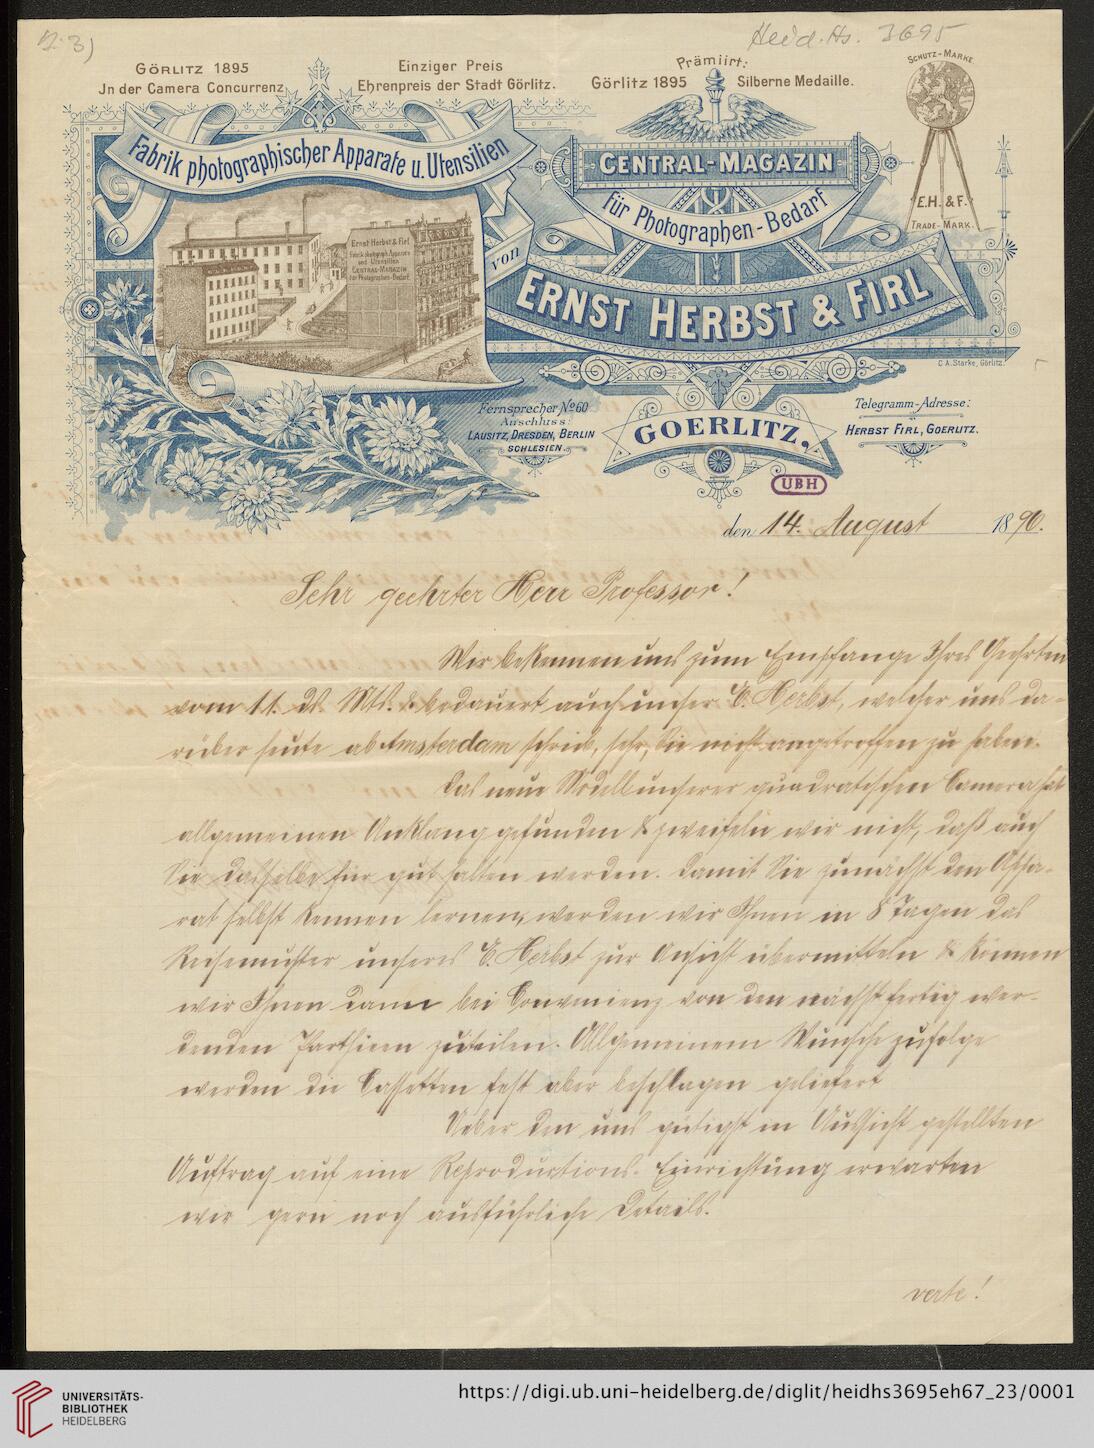 Heid. Hs. 3695
GÖRLITZ 1895
Jn der Camera Concurrenz
Einziger Preis
Ehrenpreis der Stadt Görlitz.
Prämiirt:
Görlitz 1895
Silberne Medaille.
SCHUTZ-MARKE
E.H. & F.
TRADE-MARK.
Fabrik photographischer Apparate u. Utensilien
von
CENTRAL-MAGAZIN
für Photographen-Bedarf
ERNST HERBST & FIRL
Ernst Herbst & Firl
Fabrik photograph. Apparate
und Utensilien
CENTRAL-MAGAZIN
für Photographen-Bedarf
C.A. Starke, Görlitz.
Fernsprecher No 60
Anschluss:
LAUSITZ, DRESDEN, BERLIN
SCHLESIEN.
GOERLITZ,
Telegramm-Adresse:
HERBST FIRL, GOERLITZ.
UBH
den 14. August 1896.
Sehr geehrter Herr Professor!
Wir bekennen uns zum Empfange Ihres Geehrten
vom 11. ds. Mts. & bedauert auch unser E. Herbst, welcher uns da-
rüber heute ab Amsterdam schrieb, sehr, Sie nicht angetroffen zu haben.
Das neue Modell unserer quadratischen Camera hat
allgemeinen Anklang gefunden & zweifeln wir nicht, daß auch
Sie dasselbe für gut halten werden. Damit Sie zunächst den Appa-
rat selbst kennen lernen, werden wir Ihnen in 8 Tagen das
Reisemuster unseres E. Herbst zur Ansicht übermitteln & können
wir Ihnen dann bei Convenienz von den nächst fertig wer-
denden Parthieen zuteilen. Allgemeinem Wunsche zufolge
werden die Cassetten fest aber beschlagen geliefert
Ueber den uns gütigst in Aussicht gestellten
Auftrag auf eine Reproductions-Einrichtung erwarten
wir gern noch ausführliche Details.
verte!
UNIVERSITÄTS-
BIBLIOTHEK
HEIDELBERG
https://digi.ub.uni-heidelberg.de/diglit/heidhs3695eh67_23/0001